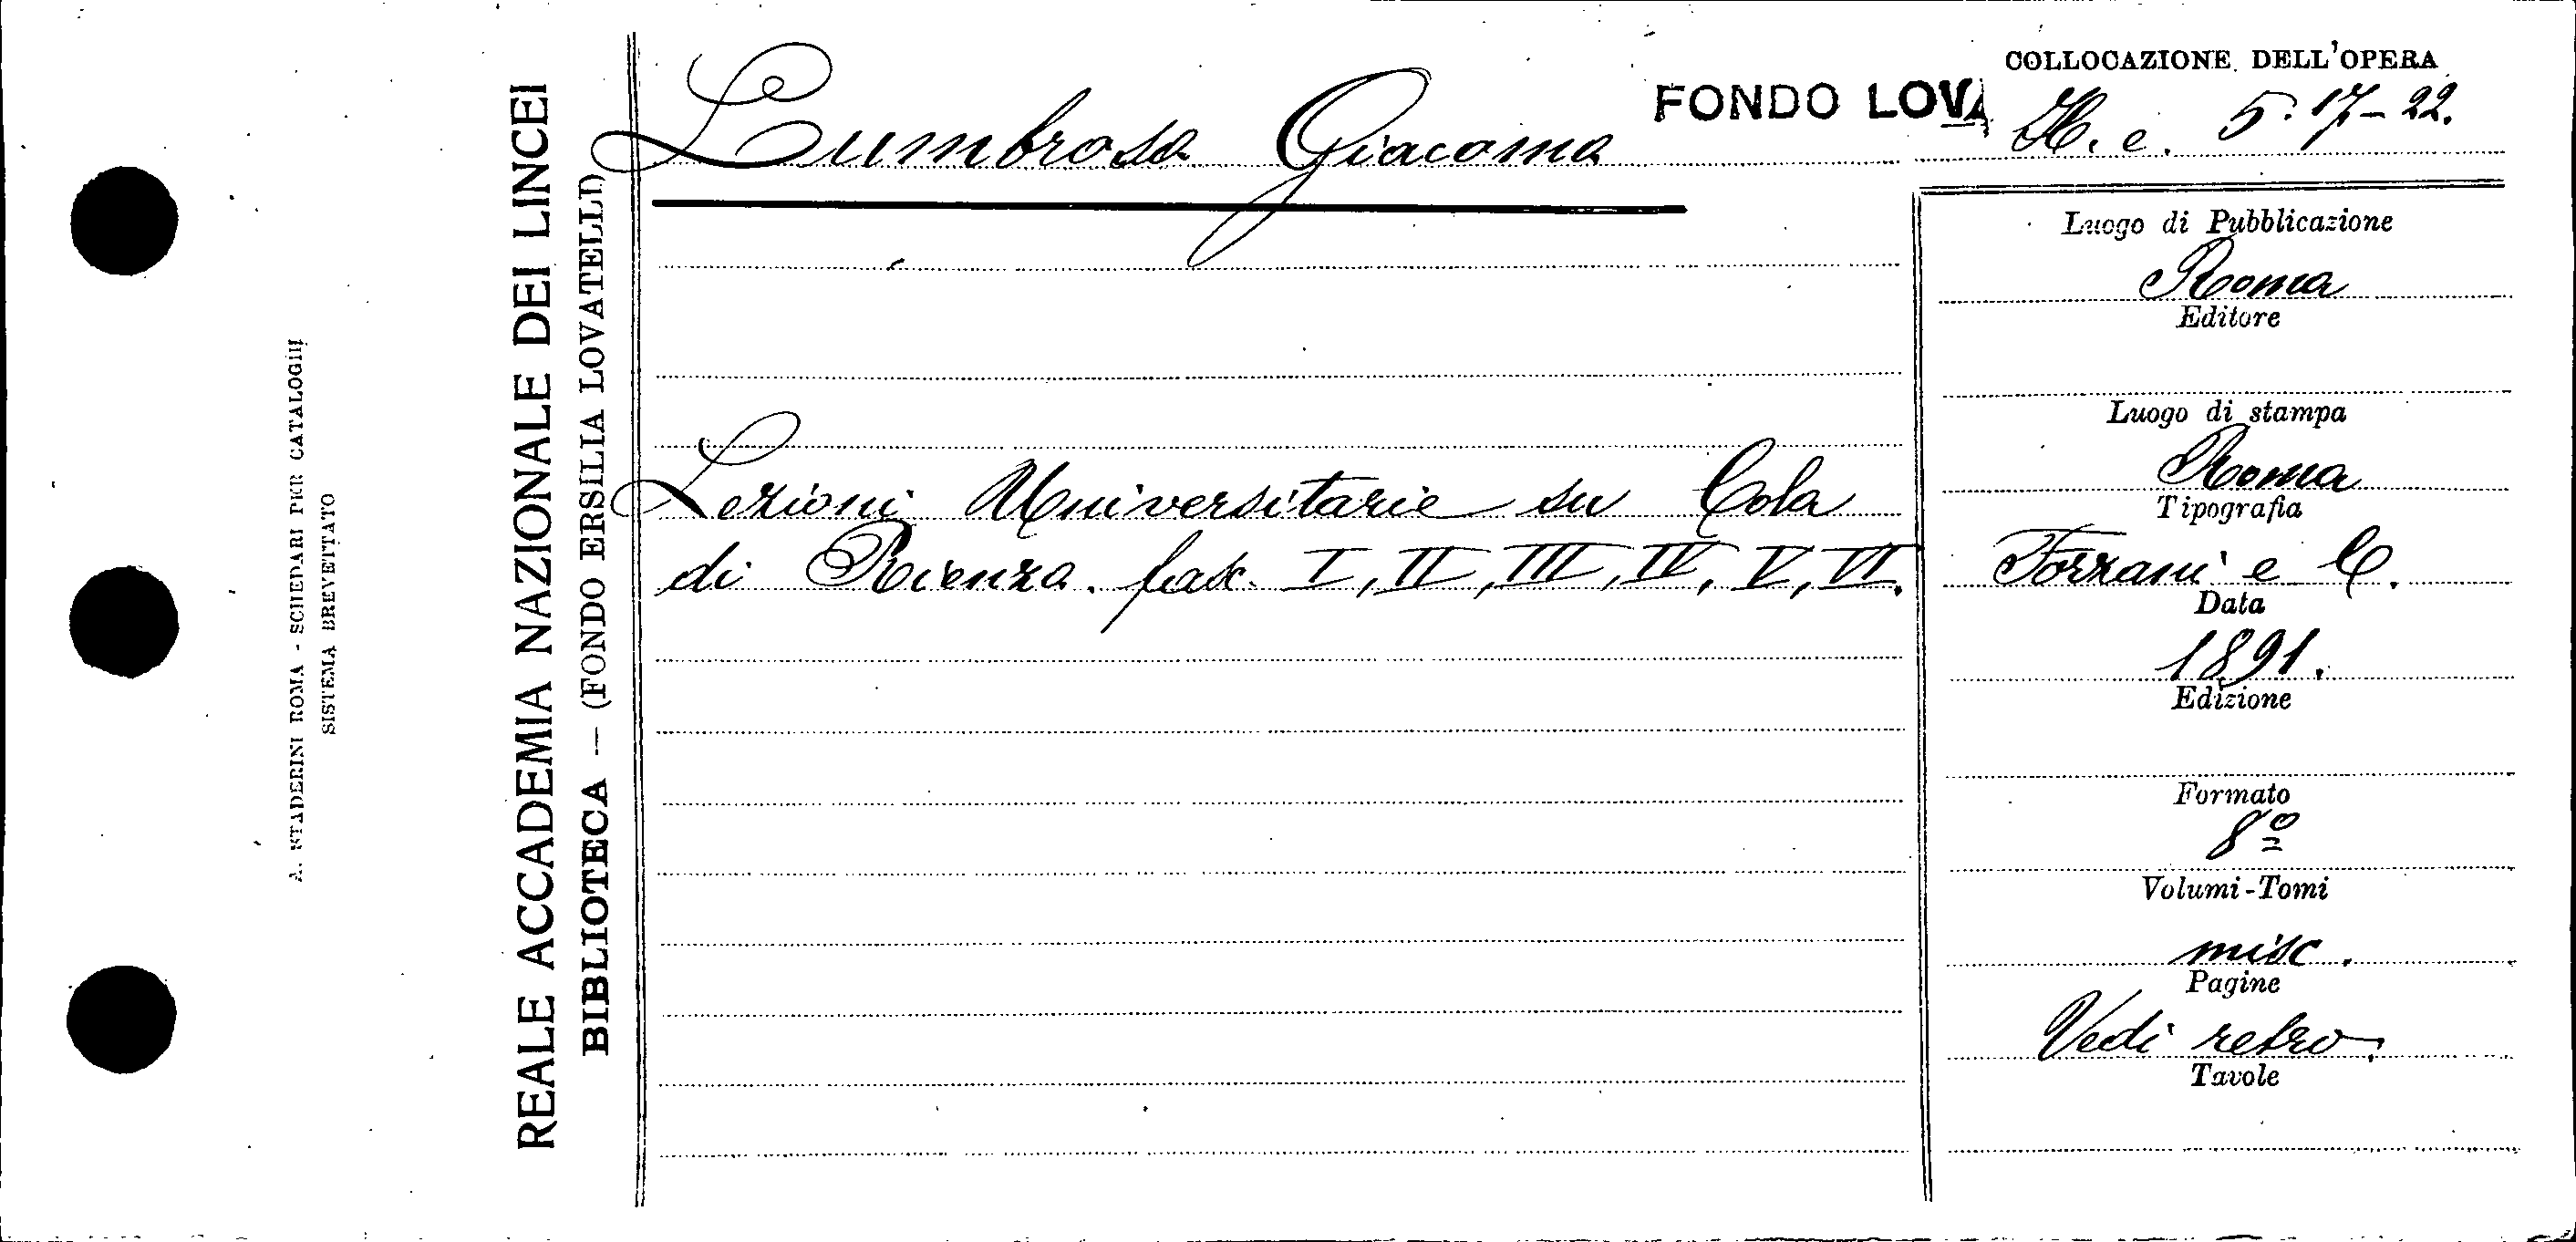 A. STADERINI ROMA - SCHEDARI PER CATALOGHI
SISTEMA BREVETTATO
REALE ACCADEMIA NAZIONALE DEI LINCEI
BIBLIOTECA — (FONDO ERSILIA LOVATELLI)
Lumbroso Giacomo
FONDO LOVA
COLLOCAZIONE DELL'OPERA
5. 17-22.
Lezioni Universitarie su Cola
di Rienzo. fasc. I, II, III, IV, V, VI.
Luogo di Pubblicazione
Roma
Editore
Luogo di stampa
Roma
Tipografia
Forzani e C.
Data
1891.
Edizione
Formato
8º
Volumi-Tomi
misc.
Pagine
Vedi retro.
Tavole